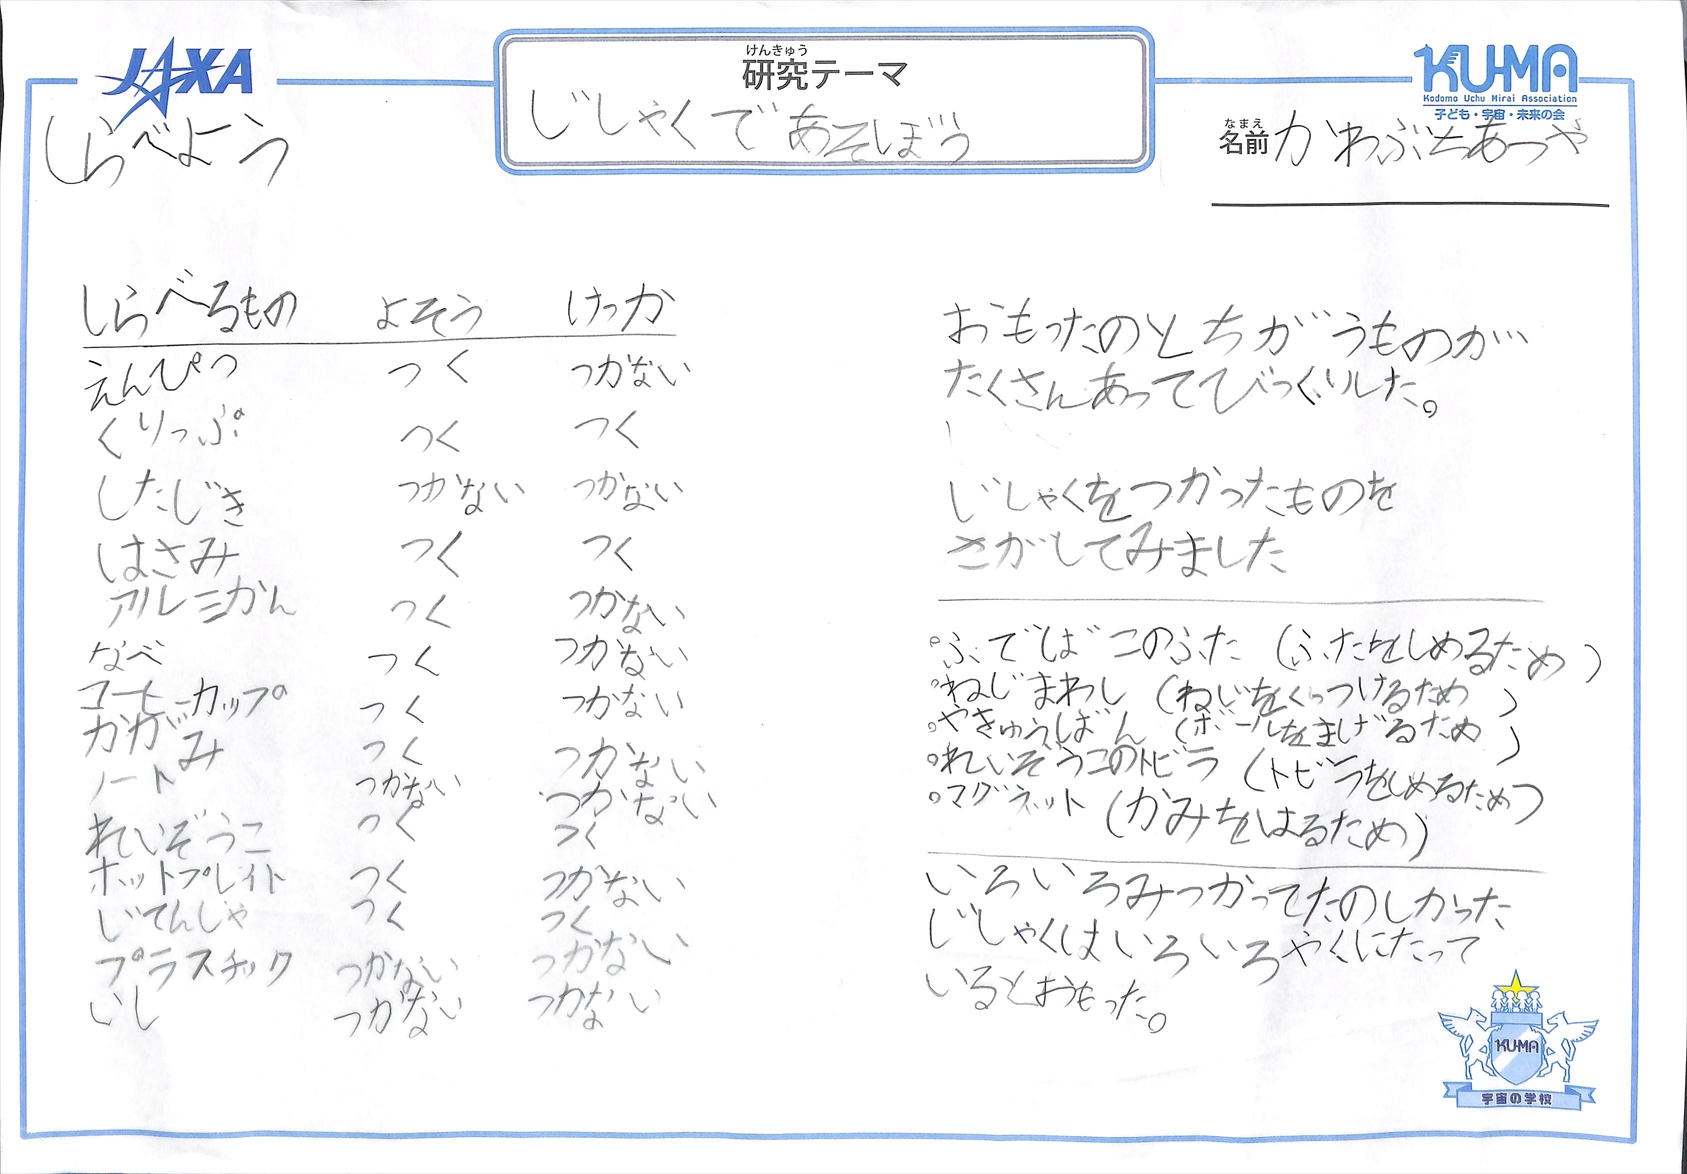 JAXA
けんきゅう
研究テーマ
じしゃくであそぼう
KU-MA
Kodomo Uchu Mirai Association
子ども・宇宙・未来の会
なまえ
名前 かわぶちあつや
しらべよう
しらべるもの よそう けっか
えんぴつ つく つかない
くりっぷ つく つく
したじき つかない つかない
はさみ つく つく
アルミかん つく つかない
なべ つく つかない
コーヒーカップ つく つかない
かがみ つく つかない
ノート つかない つかない
れいぞうこ つく つく
ホットプレイト つく つかない
じてんじゃ つく つく
プラスチック つかない つかない
いし つかない つかない
おもったのとちがうものが
たくさんあってびっくりした。
じしゃくをつかったものを
さがしてみました
・ふでばこのふた (ふたをしめるため)
・ねじまわし (ねじをくっつけるため)
・やきゅうばん (ボールをまげるため)
・れいぞうこのトビラ (トビラをしめるため)
・マグネット (かみをはるため)
いろいろみつかってたのしかった
じしゃくはいろいろやくにたって
いるとおうもった。
KU-MA
宇宙の学校